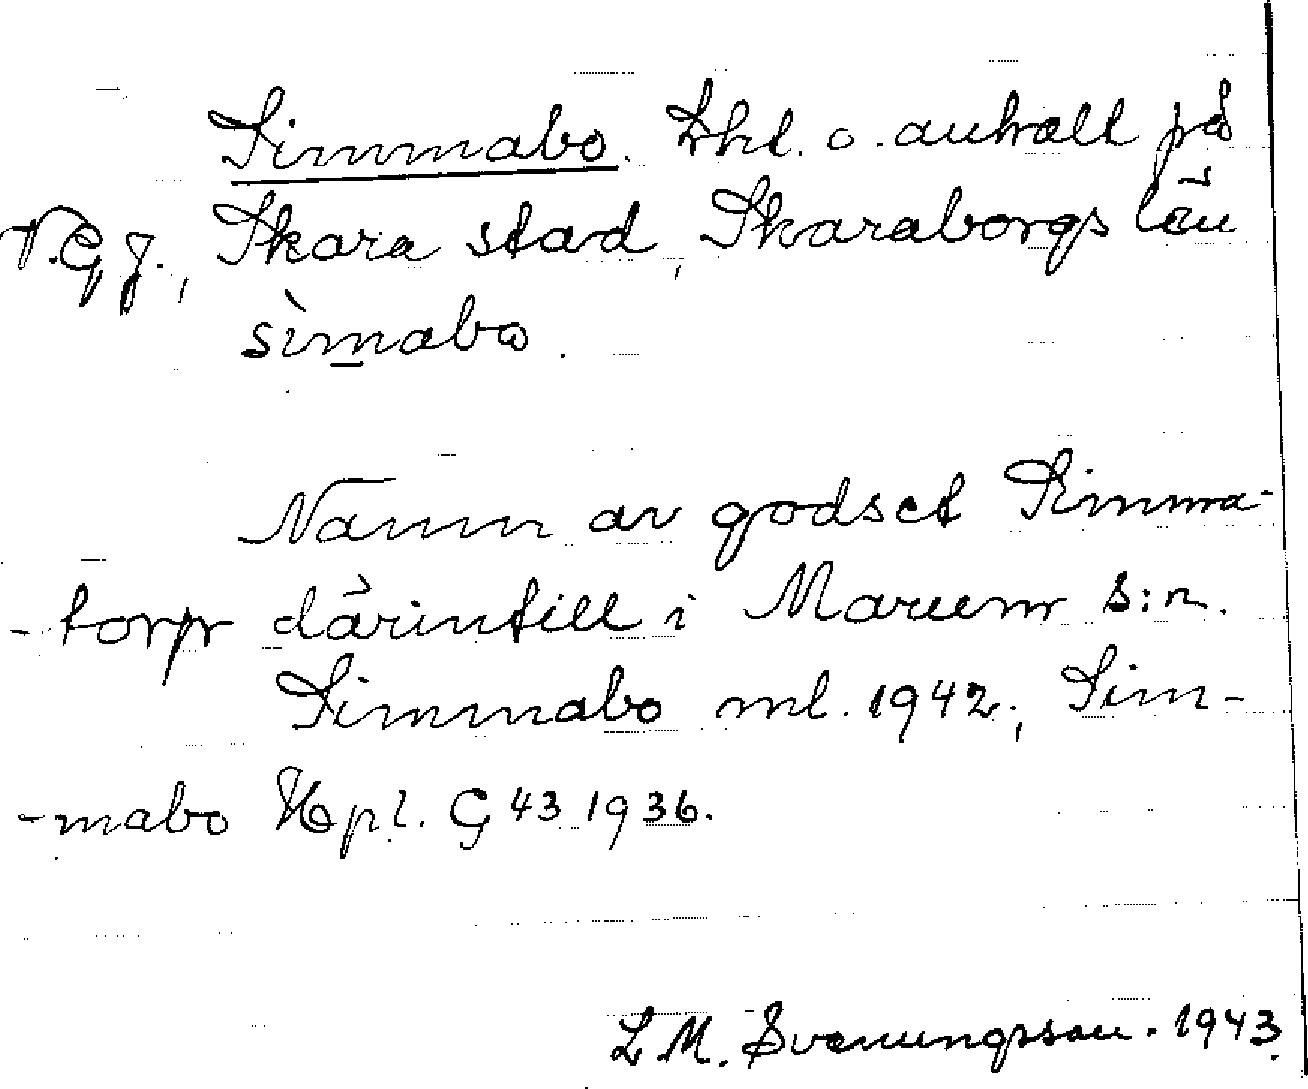 Simmabo. Lht. o. anhalt på
V.G.J., Skara stad, Skaraborgs län
sìmabo.
Namn av godset Simma-
-torp därintill i Marum s:n.
Simmabo ml. 1942; Sim-
-mabo Hpl. G 43 1936.
L. M. Svenungsson. 1943.